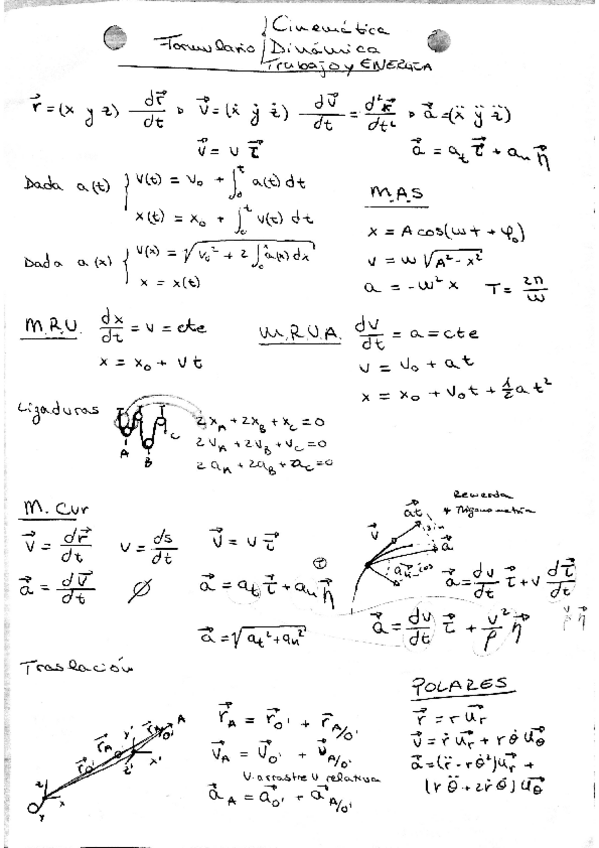 Formulario / Cinemática
Dinámica
Trabajo y ENERGIA
r⃗ = (x y z) dr⃗/dt → v⃗ = (ẋ ẏ ż) dv⃗/dt = d²r⃗/dt² → a⃗ = (ẍ ÿ z̈)
v⃗ = v τ⃗ a⃗ = a_t τ⃗ + a_n η⃗
Dada a(t) { v(t) = v₀ + ∫₀ᵗ a(t) dt
x(t) = x₀ + ∫₀ᵗ v(t) dt
Dada a(x) { v(x) = √(v₀² + 2∫₀ˣ a(x) dx)
x = x(t)
M.A.S
x = A cos(ωt + φ₀)
v = ω √(A² - x²)
a = -ω² x T = 2π/ω
M.R.U. dx/dt = v = cte
x = x₀ + vt
M.R.U.A. dv/dt = a = cte
v = v₀ + at
x = x₀ + v₀t + ½ a t²
Ligaduras
A B C
2x_A + 2x_B + x_C = 0
2v_A + 2v_B + v_C = 0
2a_A + 2a_B + a_C = 0
M. Cur
v⃗ = dr⃗/dt v = ds/dt v⃗ = v τ⃗
a⃗ = dv⃗/dt ∅ a⃗ = a_t τ⃗ + a_n η⃗
a⃗ = √(a_t² + a_n²)
Recuerda
+ Trigonometría
v⃗ a⃗t sin a⃗
a⃗n cos
a⃗ = dv/dt τ⃗ + v dτ⃗/dt
a⃗ = dv/dt τ⃗ + v²/ρ η⃗
Traslación
r⃗_A = r⃗_O' + r⃗_A/O'
v⃗_A = v⃗_O' + v⃗_A/O'
v. arrastre v relativa
a⃗_A = a⃗_O' + a⃗_A/O'
POLARES
r⃗ = r u⃗r
v⃗ = ṙ u⃗r + r θ̇ u⃗θ
a⃗ = (r̈ - r θ̇²) u⃗r +
(r θ̈ + 2ṙ θ̇) u⃗θ